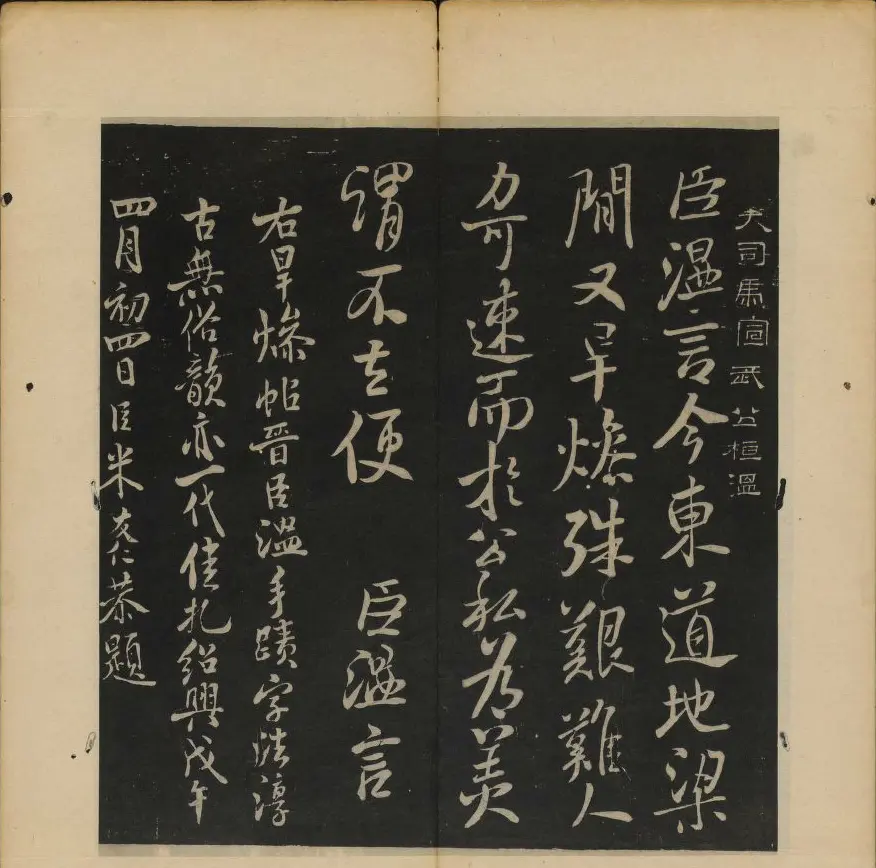 大司馬宣武公桓溫
臣溫言今東道地梁
間又旱燥殊艱難人
力可速而於公私為美
謂不去便　臣溫言
右旱燥帖晉臣溫手蹟字勢淳
古無俗韻亦一代佳札紹興戊午
四月初四日臣米友仁恭題